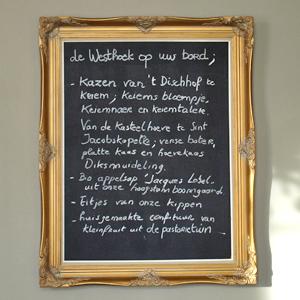 de Westhoek op uw bord;
- Kazen van 't Dischhof te
Keiem; Keiems bloempje,
Keiemnaere en keiemtaler.
Van de Kasteelhoeve te Sint
Jacobskapelle; verse boter,
platte kaas en hoevekaas
Diksmuideling.
- Bio appelsap "Jacques Lobel"
uit onze hoogstamboomgaard
- Eitjes van onze kippen
- huisgemaakte confituur van
kleinfruit uit de pastorietuin